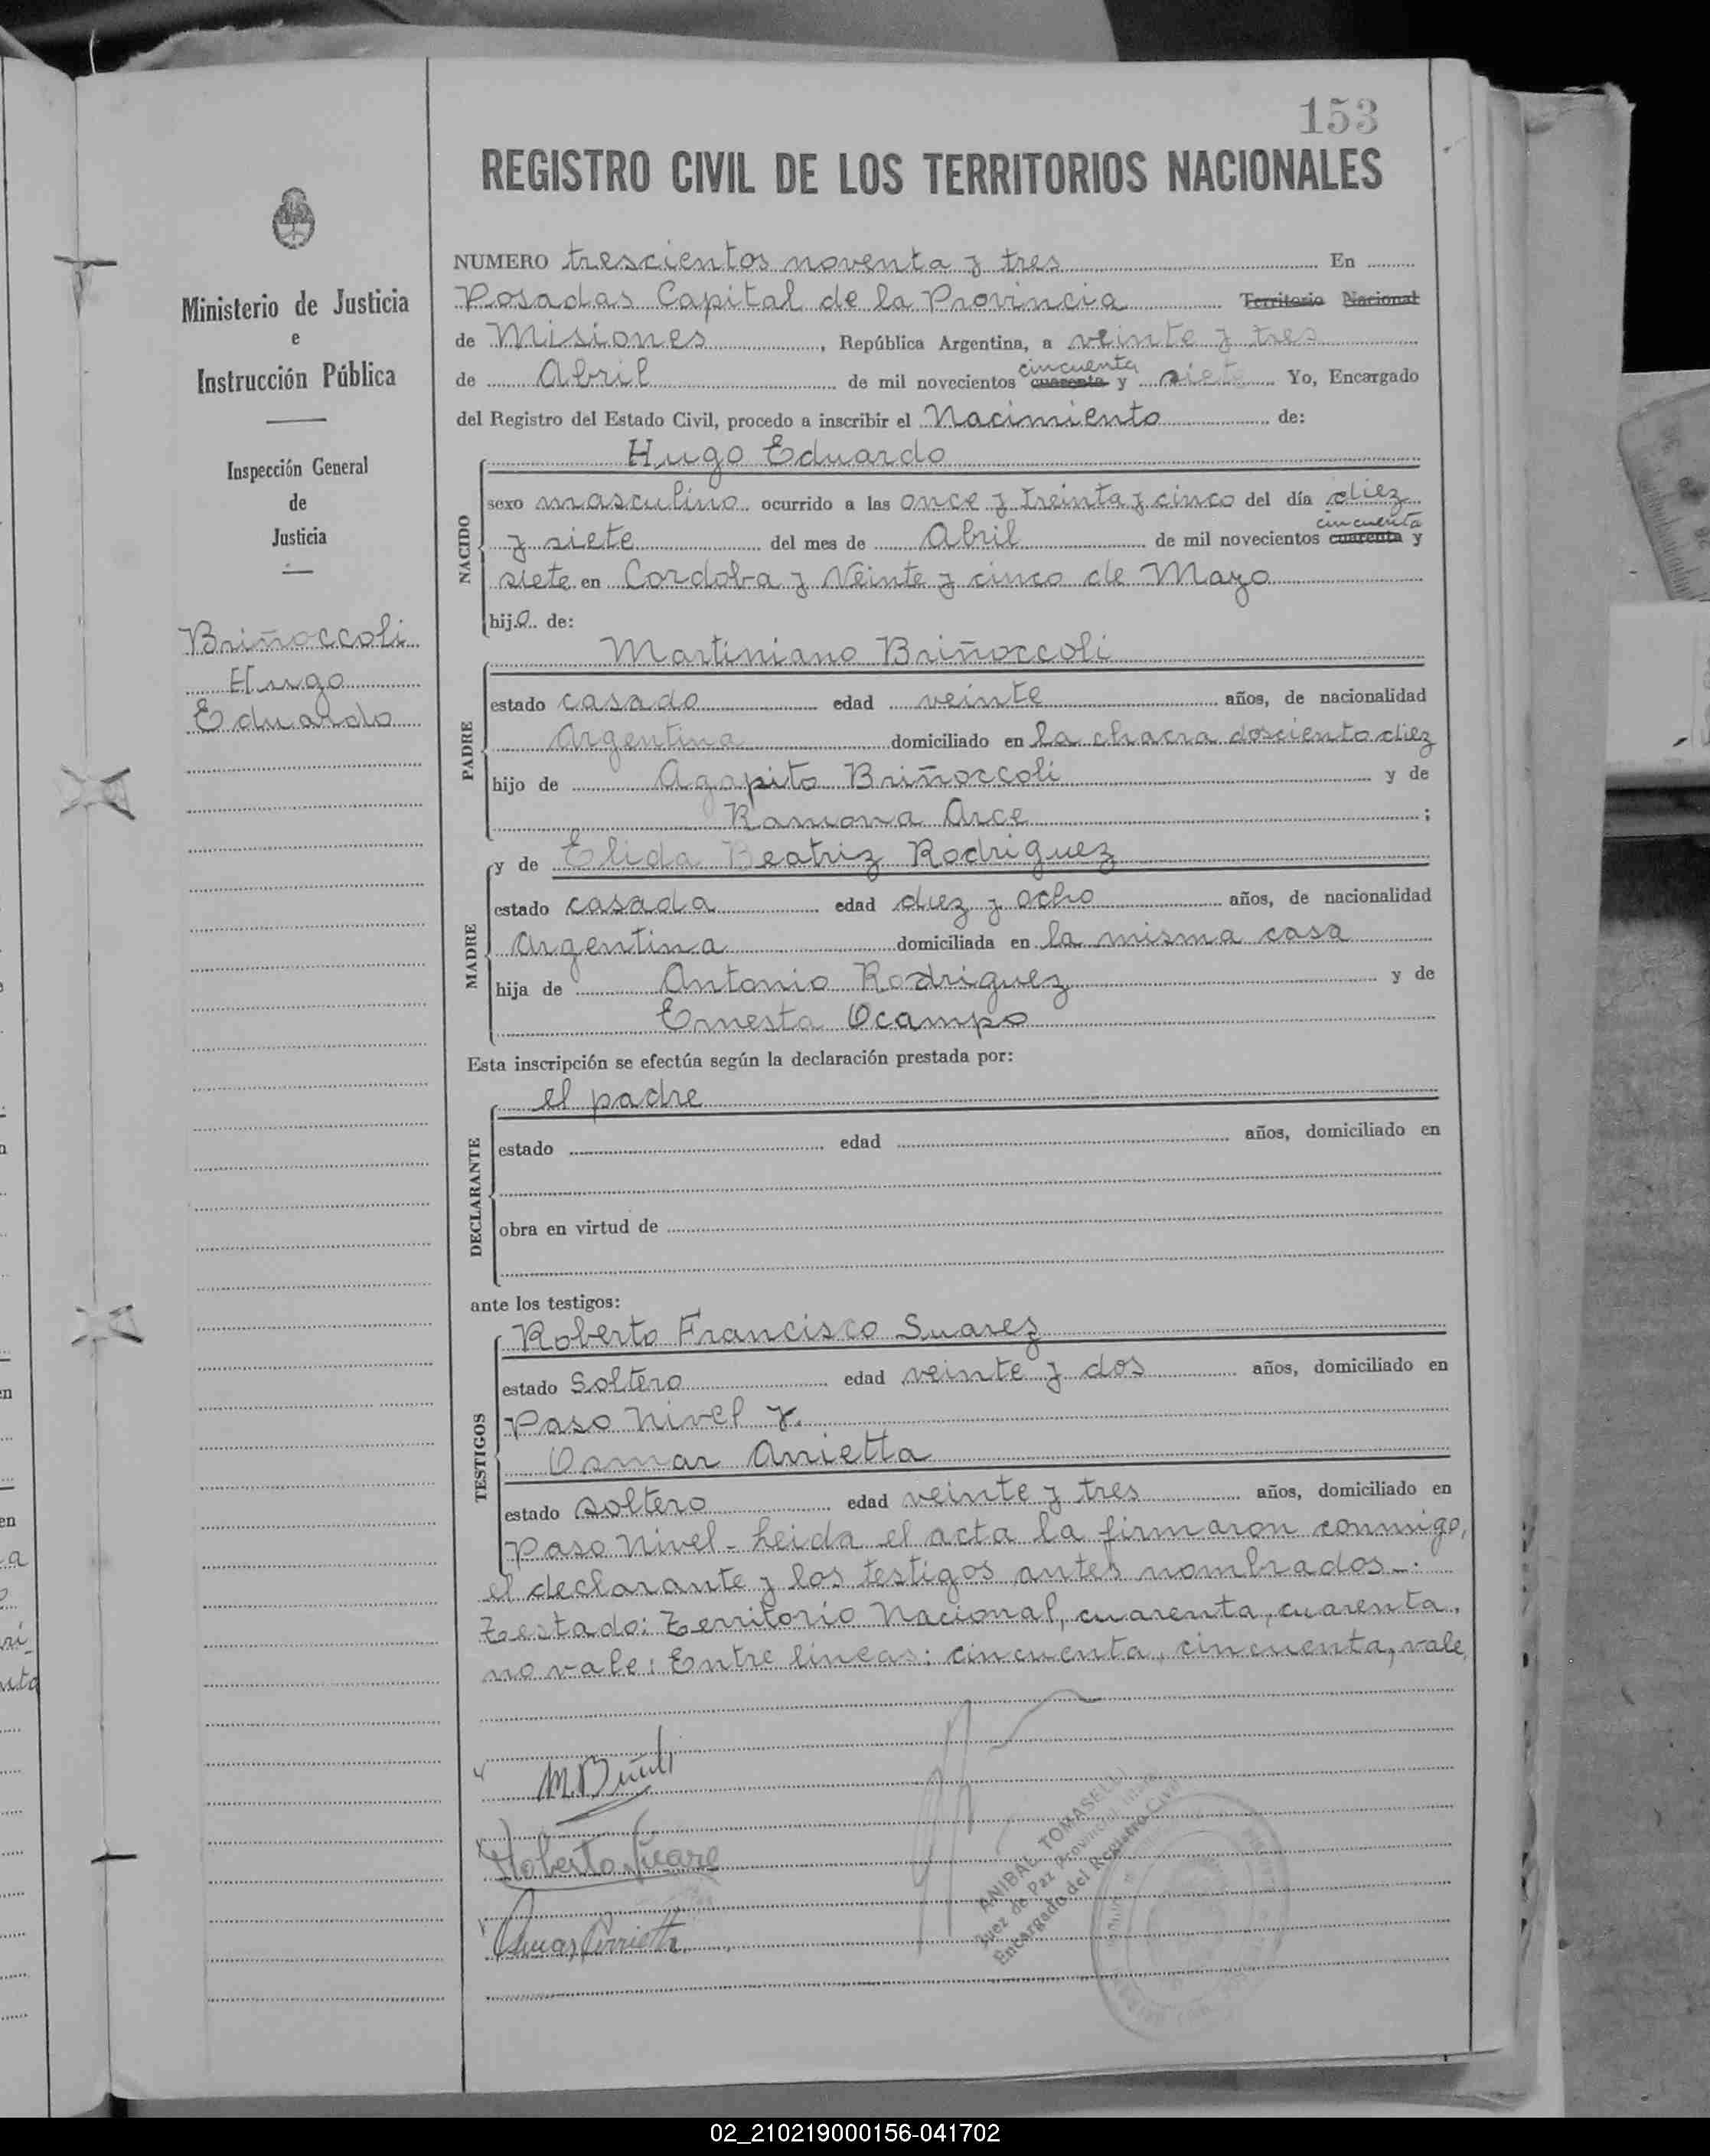 153
REGISTRO CIVIL DE LOS TERRITORIOS NACIONALES
Ministerio de Justicia
e
Instrucción Pública
Inspección General
de
Justicia
Briñoccoli
Hugo
Eduardo
NUMERO trescientos noventa y tres En
Posadas Capital de la Provincia Territorio Nacional
de Misiones, República Argentina, a veinte y tres
cincuenta
de Abril de mil novecientos cuarenta y siete Yo, Encargado
del Registro del Estado Civil, procedo a inscribir el Nacimiento de:
NACIDO
Hugo Eduardo
sexo masculino ocurrido a las once y treinta y cinco del día diez
cincuenta
y siete del mes de Abril de mil novecientos cuarenta y
siete en Cordoba y Veinte y cinco de Mayo
hijo de:
PADRE
Martiniano Briñoccoli
estado casado edad veinte años, de nacionalidad
Argentina domiciliado en la chacra dosciento diez
hijo de Agapito Briñoccoli y de
Ramona Arce ;
MADRE
y de Elida Beatriz Rodriguez
estado casada edad diez y ocho años, de nacionalidad
Argentina domiciliada en la misma casa
hija de Antonio Rodriguez y de
Ernesta Ocampo
Esta inscripción se efectúa según la declaración prestada por:
DECLARANTE
el padre
estado edad años, domiciliado en
obra en virtud de
ante los testigos:
TESTIGOS
Roberto Francisco Suarez
estado Soltero edad veinte y dos años, domiciliado en
Paso Nivel y.
Osmar Arrietta
estado soltero edad veinte y tres años, domiciliado en
Paso Nivel - Leida el acta la firmaron conmigo,
el declarante y los testigos antes nombrados -.
Testado: Territorio Nacional, cuarenta, cuarenta,
no vale: Entre lineas: cincuenta, cincuenta, vale,
Roberto Suarez
Osmar Arrietta
ANIBAL TOMASELLI
Juez de Paz Provincial
Encargado del Registro Civil
02_210219000156-041702